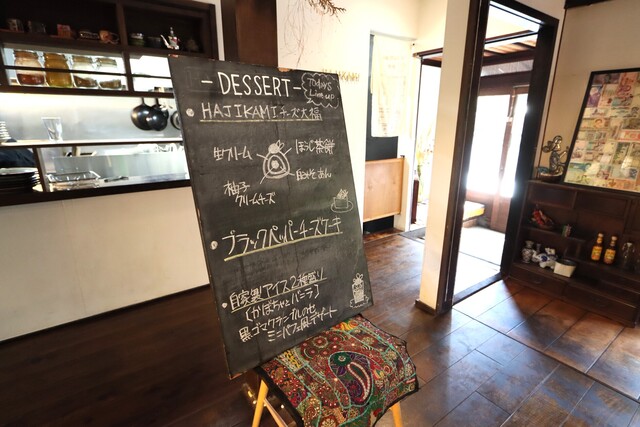 - DESSERT -
Today's
Line up
HAJIKAMIチーズ大福
生クリーム
ほうじ茶餅
柚子
クリームチーズ
白みそあん
ブラックペッパーチーズケーキ
自家製アイス2種盛り
[かぼちゃとバニラ]
黒ゴマグラニオルのせ
ミニパフェ風デザート